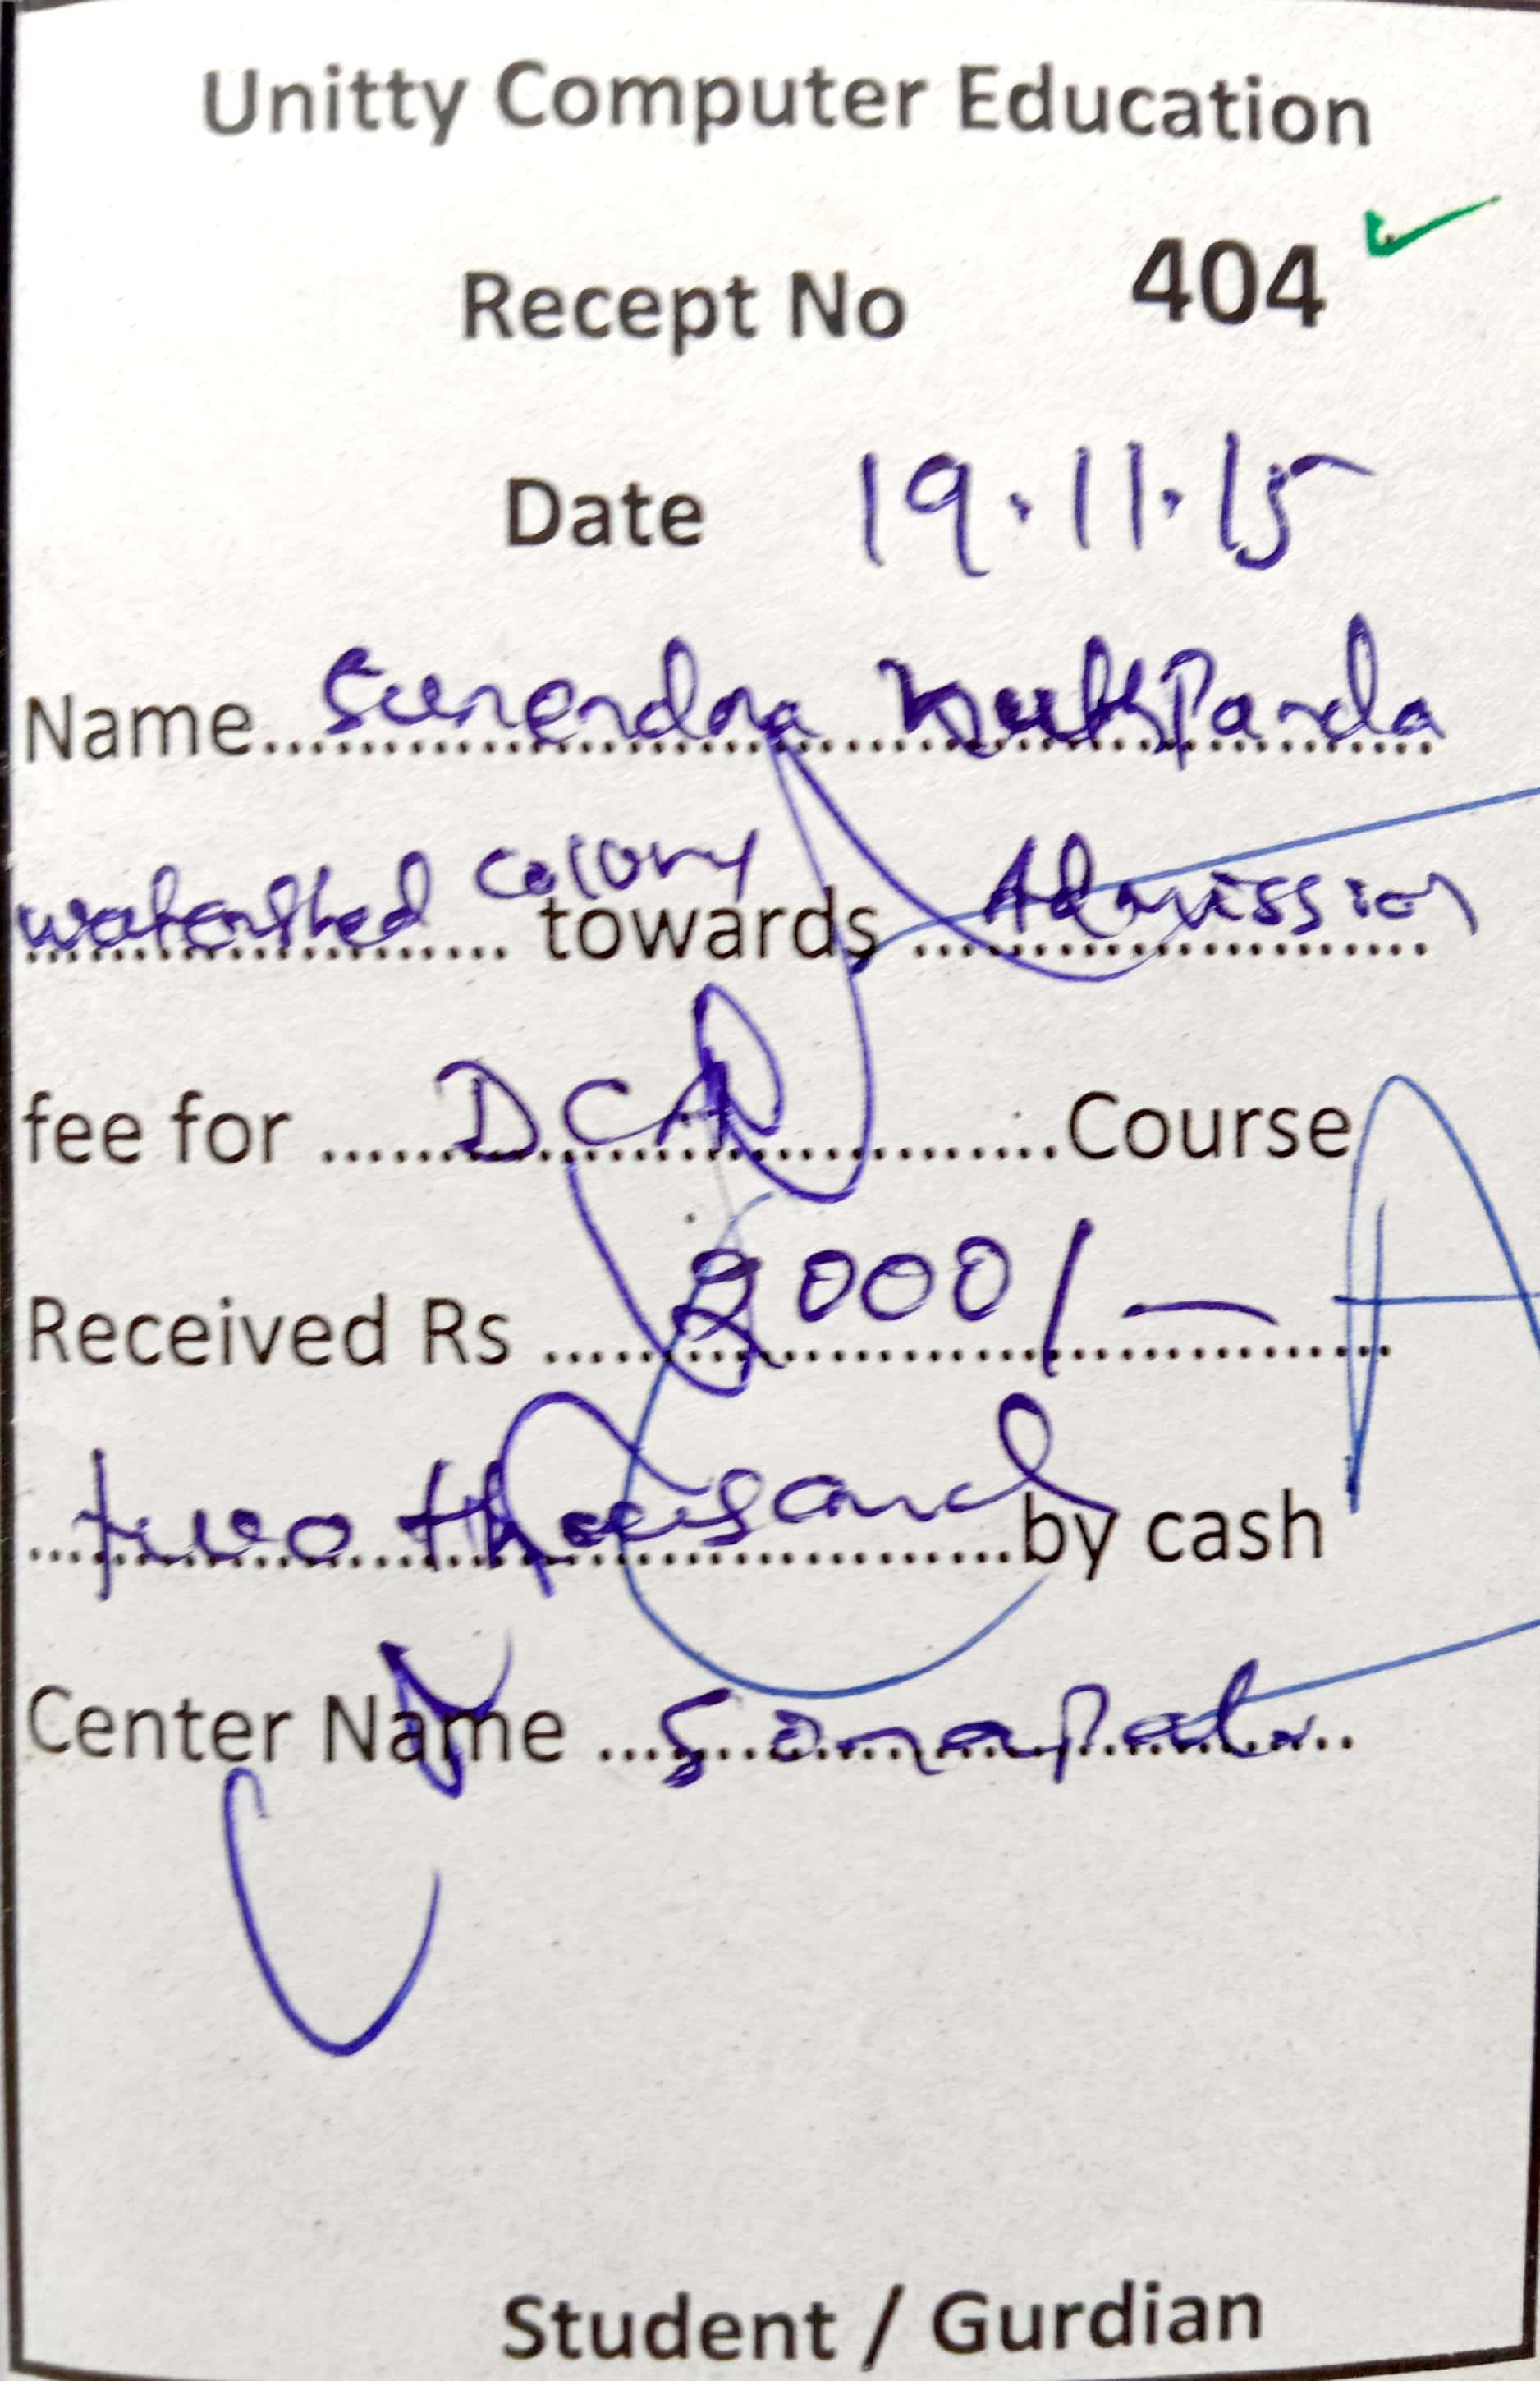 Unitty Computer Education
Recept No 404
Date 19.11.15
Name Surendra Panda
watershed colony towards Admission
fee for DCA Course
Received Rs 2000/-
two thousand by cash
Center Name
Student / Gurdian